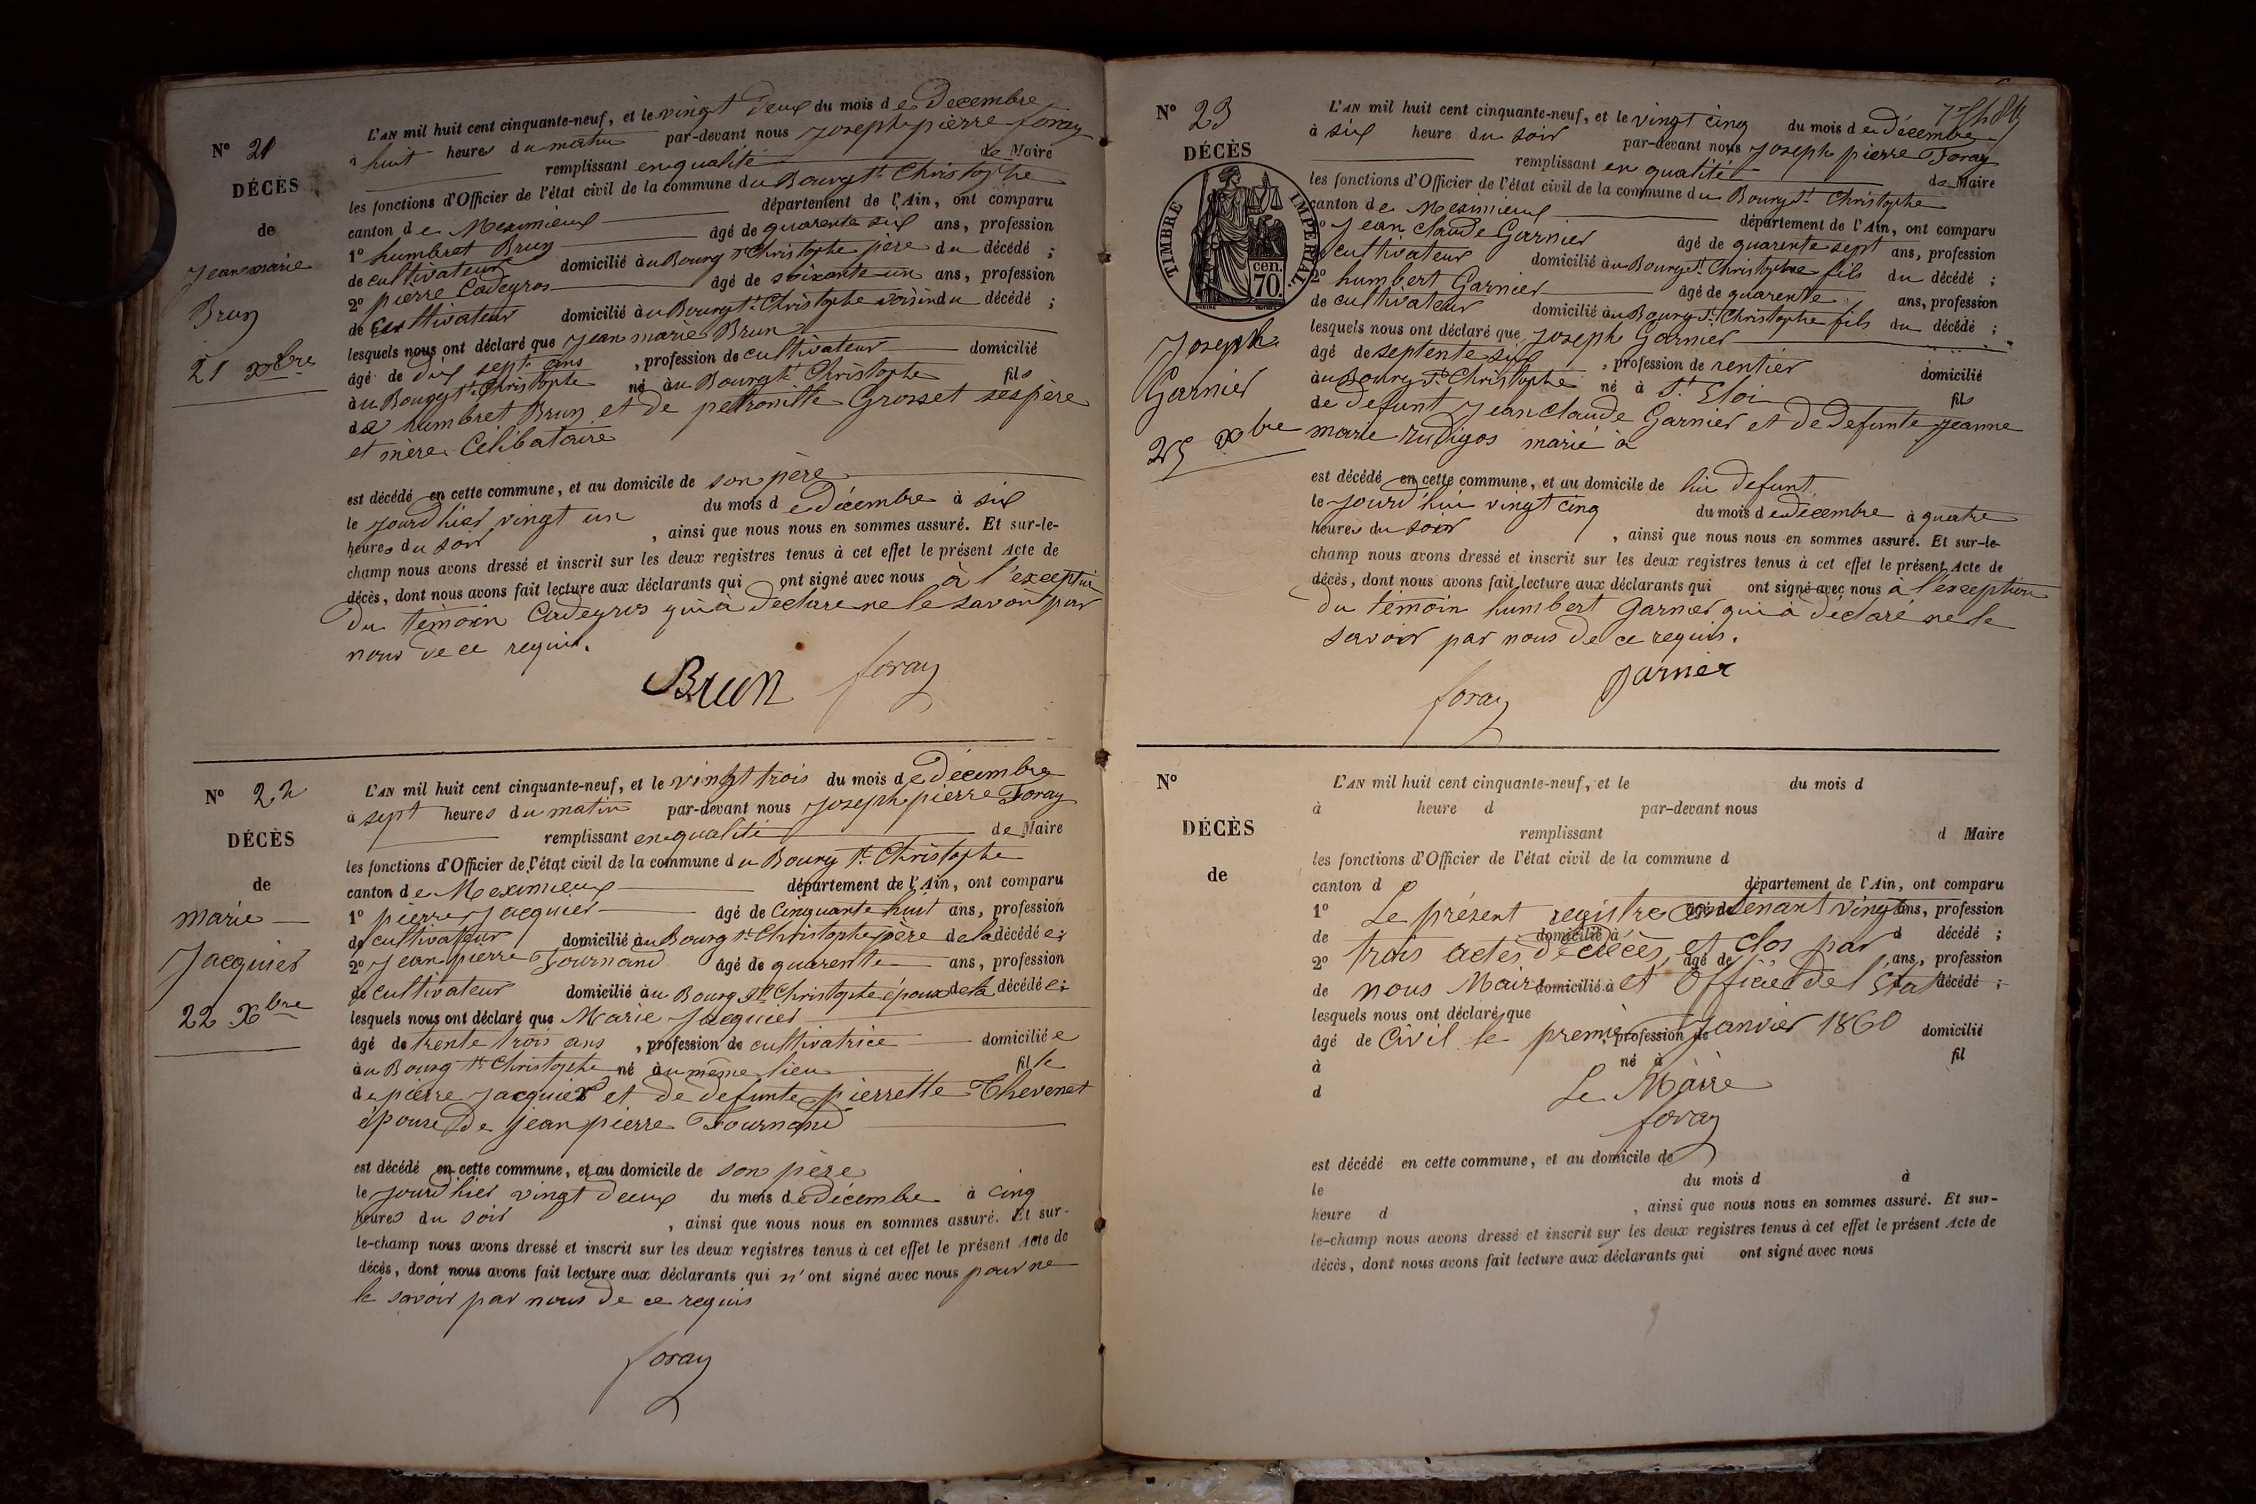 N° 21
DÉCÈS
de
Jean marie
Brun
21 Xbre
L'AN mil huit cent cinquante-neuf, et le vingt deux du mois de Decembre
à huit heures du matin par-devant nous Joseph pierre foray
remplissant en qualité de Maire
les fonctions d'Officier de l'état civil de la commune du Bourg St Christophe
canton de Meximieux département de l'Ain, ont comparu
1° humbret Brun âgé de quarente six ans, profession
de cultivateur domicilié au Bourg St Christophe père du décédé ;
2° pierre Cadeyros âgé de soixante un ans, profession
de Cultivateur domicilié au Bourg St Christophe voisin du décédé ;
lesquels nous ont déclaré que jean marie Brun
âgé de dix sept ans , profession de cultivateur domicilié
à u Bourg St Christophe né à u Bourg St Christophe fils
de humbret Brun et de petronille Grosset ses père
et mère Célibataire
est décédé en cette commune, et au domicile de son père
le jourd'hier vingt un du mois de décembre à six
heures du soir , ainsi que nous nous en sommes assuré. Et sur-le-
champ nous avons dressé et inscrit sur les deux registres tenus à cet effet le présent Acte de
décès, dont nous avons fait lecture aux déclarants qui ont signé avec nous à l'exception
du témoin Cadeyros qui à déclare ne le savoir par
nous de ce requis.
Brun foray
N° 22
DÉCÈS
de
marie
Jacquier
22 Xbre
L'AN mil huit cent cinquante-neuf, et le vingt trois du mois de décembre
à sept heures du matin par-devant nous Joseph pierre Foray
remplissant en qualité de Maire
les fonctions d'Officier de l'état civil de la commune du Bourg St Christophe
canton de Meximieux département de l'Ain, ont comparu
1° pierre Jacquier âgé de Cinquante huit ans, profession
de cultivateur domicilié au Bourg St Christophe père de la décédée ;
2° Jean pierre Tournand âgé de quarente ans, profession
de Cultivateur domicilié au Bourg St Christophe époux de la décédée ;
lesquels nous ont déclaré que Marie Jacquier
âgé de trente trois ans , profession de cultivatrice domiciliée
à u Bourg St Christophe né à u même lieu fille
de pierre Jacquier et de defunte pierrette Thevenet
épouse de jean pierre Tournand
est décédé en cette commune, et au domicile de son père
le jourd'hier vingt deux du mois de décembre à cinq
heures du soir , ainsi que nous nous en sommes assuré. Et sur-
le-champ nous avons dressé et inscrit sur les deux registres tenus à cet effet le présent Acte de
décès, dont nous avons fait lecture aux déclarants qui n'ont signé avec nous pour ne
le savoir par nous de ce requis
foray
N° 23
DÉCÈS
TIMBRE IMPERIAL
cen.
70.
Joseph
Garnier
25 Xbre
L'AN mil huit cent cinquante-neuf, et le vingt cinq du mois de décembre
à six heure du soir par-devant nous Joseph pierre Foray
remplissant en qualité de Maire
les fonctions d'Officier de l'état civil de la commune du Bourg St Christophe
canton de Meximieux département de l'Ain, ont comparu
1° Jean Claude Garnier âgé de quarente sept ans, profession
de cultivateur domicilié au Bourg St Christophe fils du décédé ;
2° humbert Garnier âgé de quarente ans, profession
de cultivateur domicilié au Bourg St Christophe fils du décédé ;
lesquels nous ont déclaré que Joseph Garnier
âgé de septente six , profession de rentier domicilié
à u Bourg St Christophe né à St Eloi fils
de defunt Jean Claude Garnier et de defunte jeanne
marie rudigos marié à
est décédé en cette commune, et au domicile de lui defunt
le jourd'hui vingt cinq du mois de décembre à quatre
heures du soir , ainsi que nous nous en sommes assuré. Et sur-le-
champ nous avons dressé et inscrit sur les deux registres tenus à cet effet le présent Acte de
décès, dont nous avons fait lecture aux déclarants qui ont signé avec nous à l'exception
du témoin humbert Garnier qui à déclaré ne le
savoir par nous de ce requis.
foray garnier
N°
DÉCÈS
de
L'AN mil huit cent cinquante-neuf, et le du mois d
à heure d par-devant nous
remplissant d Maire
les fonctions d'Officier de l'état civil de la commune d
canton d département de l'Ain, ont comparu
1° Le présent registre contenant vingt âgé de ans, profession
de domicilié à d décédé ;
2° trois actes de décès, et clos par âgé de ans, profession
de nous Maire domicilié à et Officier de l'État d décédé ;
lesquels nous ont déclaré que
âgé de Civil le premier Janvier 1860 , profession de domicilié
à né à fil
d Le Maire
foray
est décédé en cette commune, et au domicile de
le du mois d à
heure d , ainsi que nous nous en sommes assuré. Et sur-
le-champ nous avons dressé et inscrit sur les deux registres tenus à cet effet le présent Acte de
décès, dont nous avons fait lecture aux déclarants qui ont signé avec nous